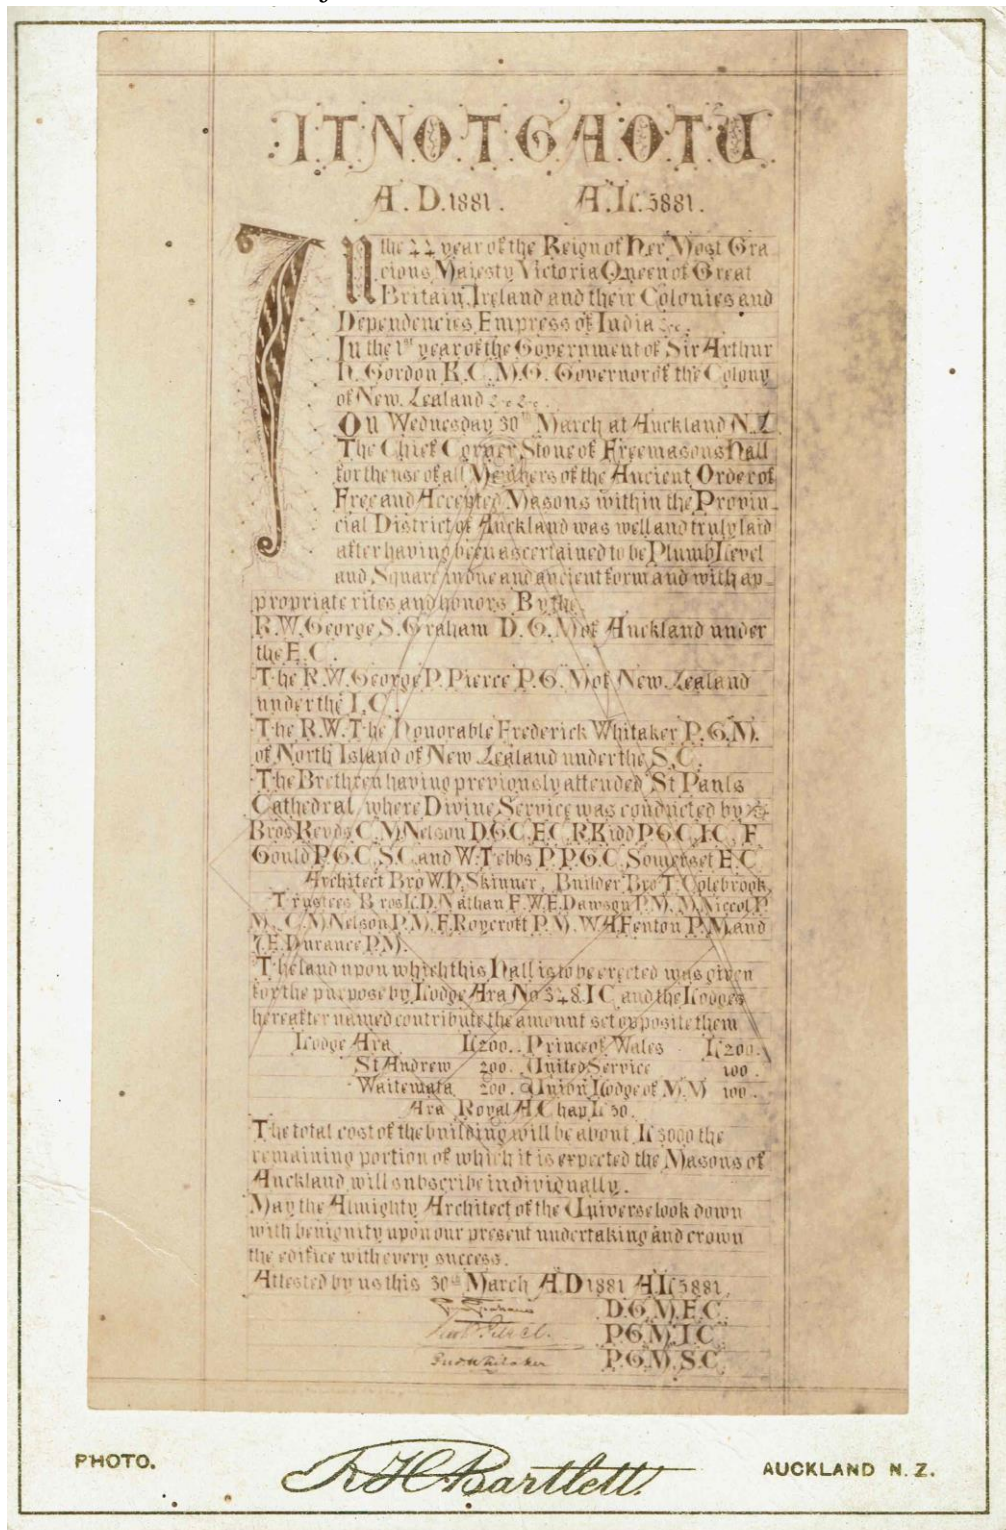 I.T.N.O.T.G.A.O.T.U.
A.D.1881. A.L.5881.
In the 44 year of the Reign of Her Most Gra
cious Majesty Victoria Queen of Great
Britain, Ireland and their Colonies and
Dependencies Empress of India &c.
In the 1st year of the Government of Sir Arthur
H. Gordon K.C.M.G. Governor of the Colony
of New Zealand &c &c.
On Wednesday 30th March at Auckland N.Z
The Chief Corner Stone of Freemasons Hall
for the use of all Members of the Ancient Order of
Free and Accepted Masons within the Provin-
cial District of Auckland was well and truly laid
after having been ascertained to be Plumb Level
and Square in due and ancient form and with ap-
propriate rites and honors By the
R.W. George S. Graham D.G.M of Auckland under
the E.C.
The R.W. George P. Pierce P.G.M of New Zealand
under the I.C.
The R.W. The Honorable Frederick Whitaker P.G.M.
of North Island of New Zealand under the S.C.
The Brethren having previously attended St Pauls
Cathedral where Divine Service was conducted by
Bros Revds C.M. Nelson D.G.C. E.C. R. Kidd P.G.C. I.C. F.
Gould P.G.C. S.C. and W. Tebbs P.P.G.C. Somerset E.C
Architect Bro W.D. Skinner, Builder Bro T. Colebrook,
Trustees Bros L.D. Nathan F.W.E. Dawson P.M. M. Niccol P.
M. C.M Nelson P.M. F. Roycroft P.M. W.A Fenton P.M. and
J.E. Durance P.M.
The land upon which this Hall is to be erected was given
for the purpose by Lodge Ara No 348. I C and the Lodges
hereafter named contribute the amount set opposite them
Lodge Ara L 200.. Prince of Wales L 200.
St Andrew 200. United Service 100.
Waitemata 200. Union Lodge of M.M 100.
Ara Royal A Chap L 50.
The total cost of the building will be about L 3000 the
remaining portion of which it is expected the Masons of
Auckland will subscribe individually.
May the Almighty Architect of the Universe look down
with benignity upon our present undertaking and crown
the edifice with every success.
Attested by us this 30th March A.D 1881 A.L 5881.
D.G.M.E.C.
P.G.M.I.C.
Fred Whitaker P.G.M.S.C.
PHOTO. R H Bartlett AUCKLAND N.Z.